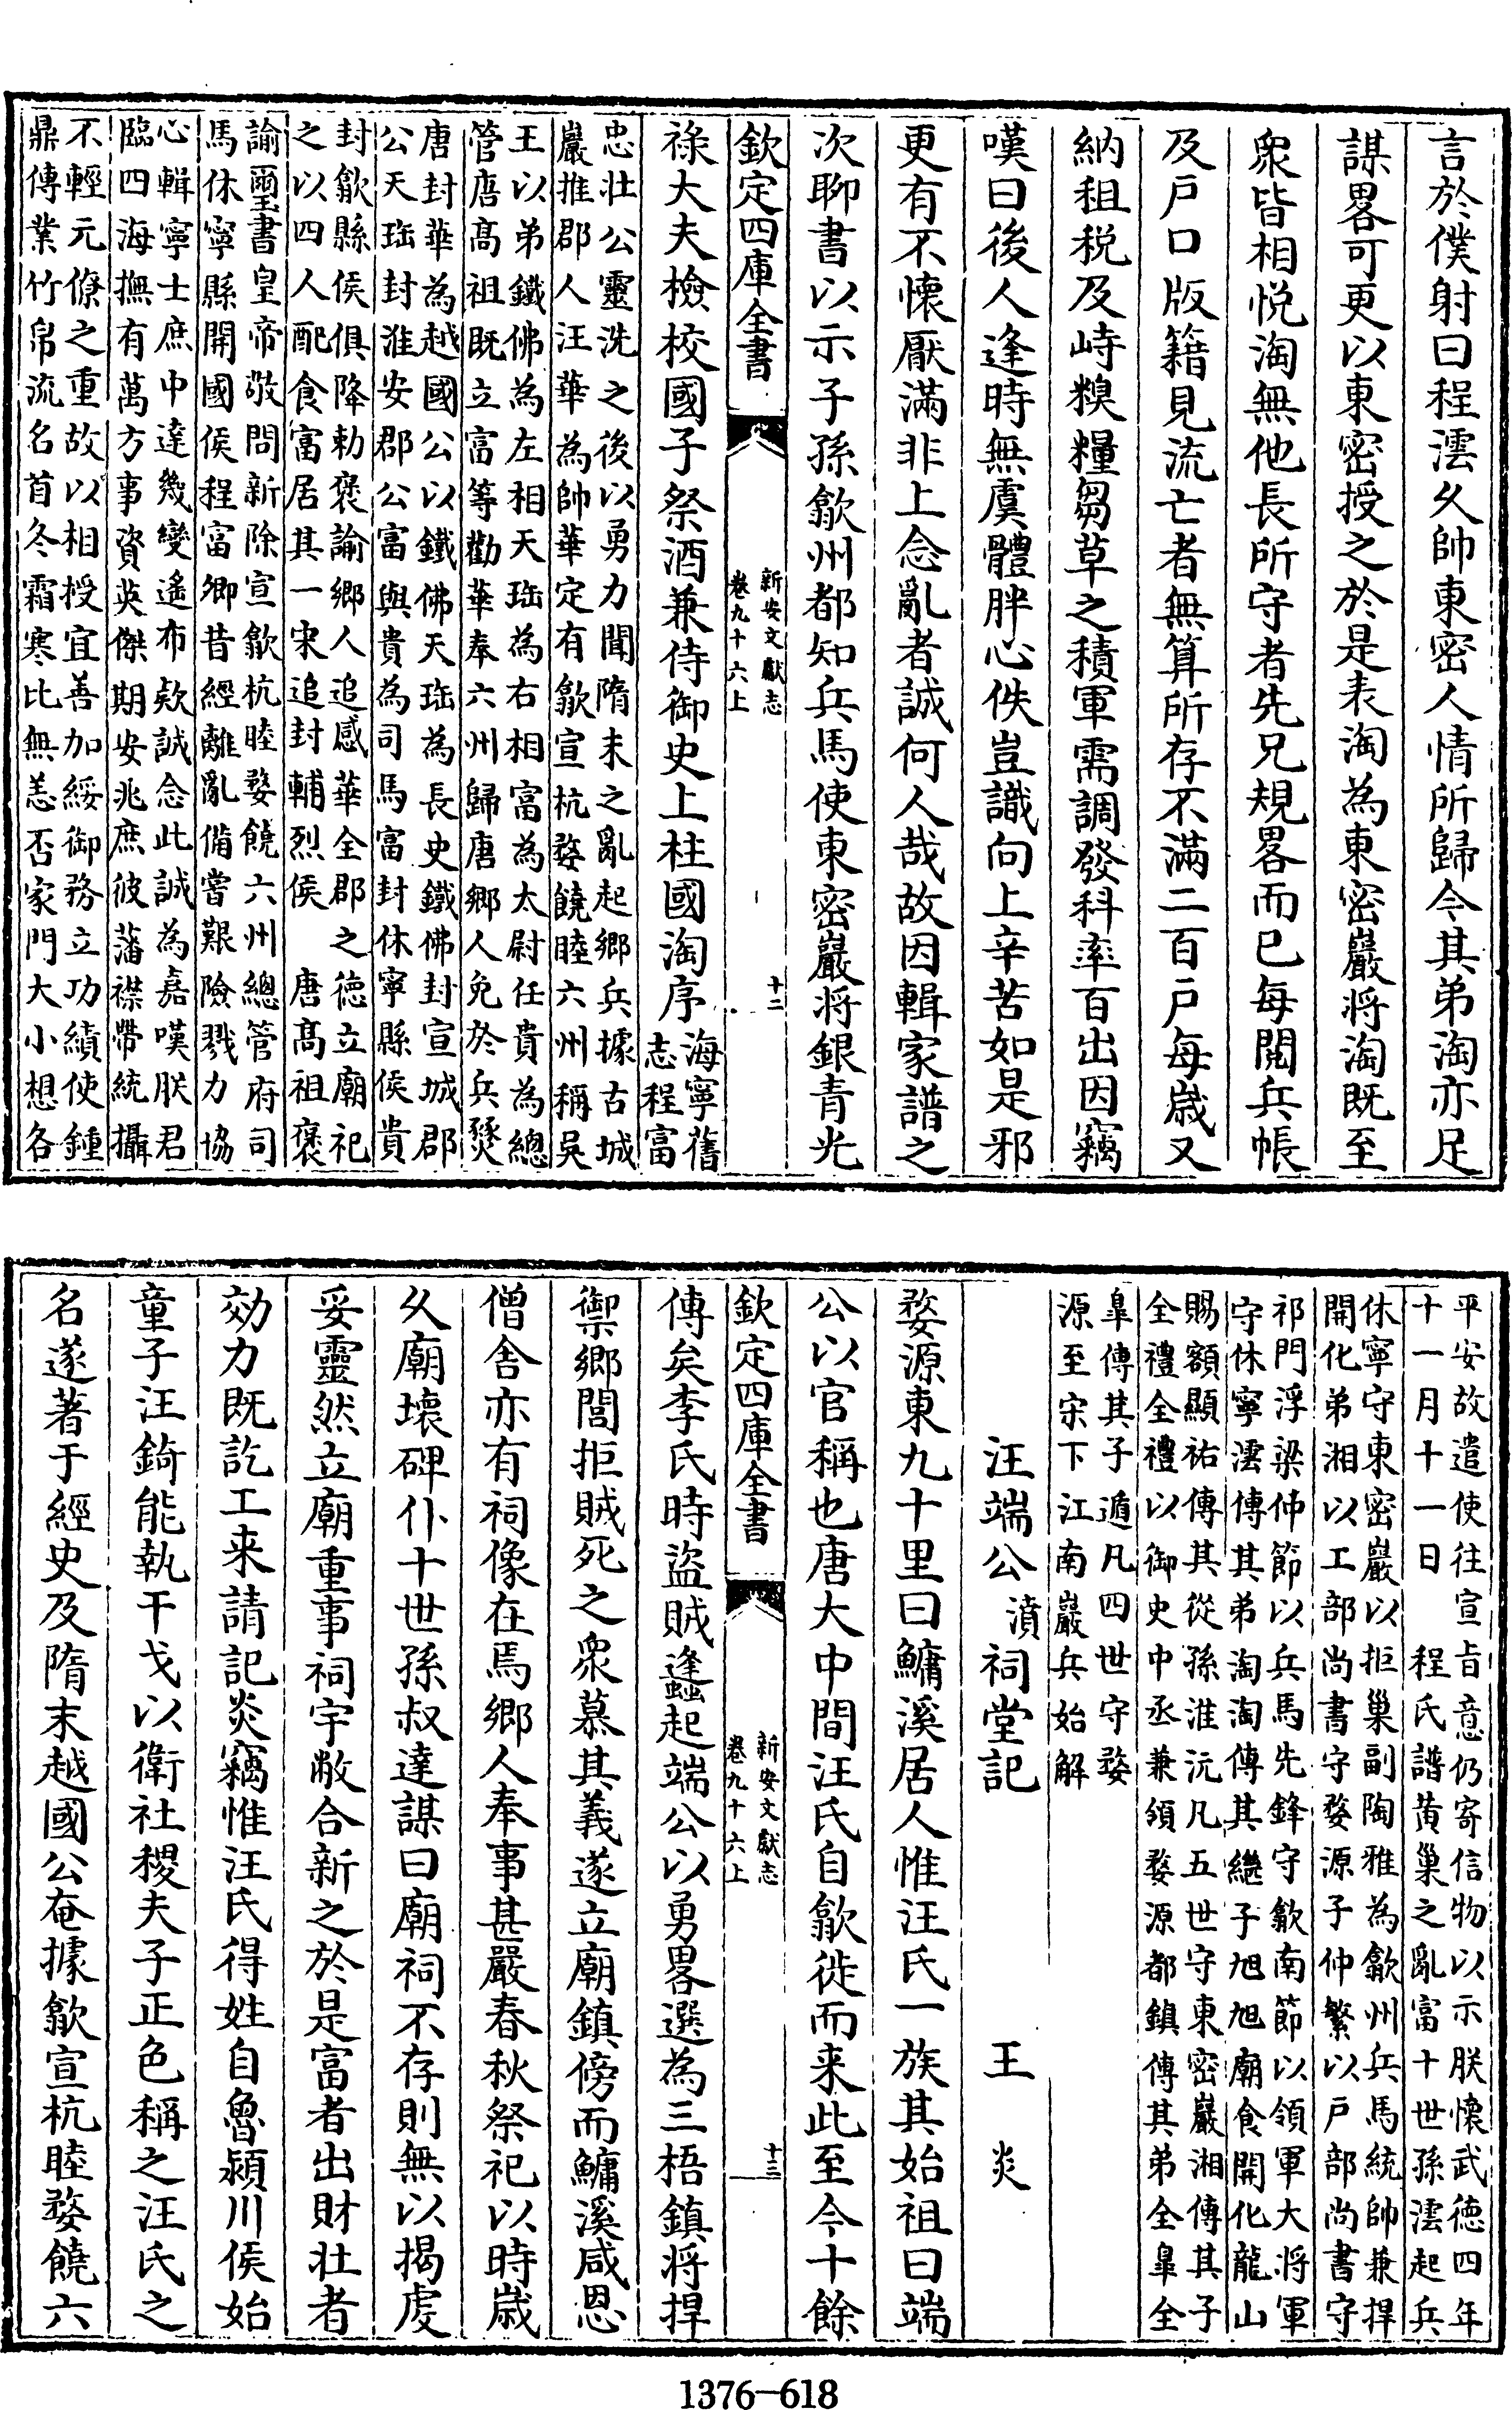 言於僕射曰程澐久帥東密人情所歸今其弟淘亦足
謀畧可更以東密授之於是表淘為東密巖将淘既至
衆皆相悦淘無他長所守者先兄規畧而已每閱兵帳
及戸口版籍見流亡者無算所存不滿二百戸每歲又
納租税及峙糗糧芻草之積軍需調發科率百出因竊
嘆曰後人逢時無虞體胖心佚豈識向上辛苦如是邪
更有不懷厭滿非上念亂者誠何人哉故因輯家譜之
次聊書以示子孫歙州都知兵馬使東密巖将銀青光
欽定四庫全書
新安文獻志
卷九十六上
十二
祿大夫檢校國子祭酒兼侍御史上柱國淘序
海寧舊
志程富
忠壯公靈洗之後以勇力聞隋末之亂起鄉兵據古城
巖推郡人汪華為帥華定有歙宣杭婺饒睦六州稱吳
王以弟鐵佛為左相天珤為右相富為太尉任貴為總
管唐髙祖既立富等勸華奉六州歸唐鄉人免於兵燹
唐封華為越國公以鐵佛天珤為長史鐵佛封宣城郡
公天珤封淮安郡公富與貴為司馬富封休寧縣侯貴
封歙縣侯俱降勅褒諭鄉人追感華全郡之徳立廟祀
之以四人配食富居其一宋追封輔烈侯　唐髙祖褒
諭璽書皇帝敬問新除宣歙杭睦婺饒六州總管府司
馬休寧縣開國侯程富卿昔經離亂備嘗艱險戮力協
心輯寧士庶中達幾變遙布欵誠念此誠為嘉嘆朕君
臨四海撫有萬方事資英傑期安兆庶彼藩襟帶統攝
不輕元僚之重故以相授宜善加綏御務立功績使鍾
鼎傳業竹帛流名首冬霜寒比無恙否家門大小想各
平安故遣使往宣旨意仍寄信物以示朕懷武徳四年
十一月十一日　程氏譜黄巢之亂富十世孫澐起兵
休寧守東密巖以拒巢副陶雅為歙州兵馬統帥兼捍
開化弟湘以工部尚書守婺源子仲繁以戸部尚書守
祁門浮梁仲節以兵馬先鋒守歙南節以領軍大将軍
守休寧澐傳其弟淘淘傳其繼子旭旭廟食開化龍山
賜額顯祐傳其從孫淮沅凡五世守東密巖湘傳其子
全禮全禮以御史中丞兼領婺源都鎮傳其弟全臯全
臯傳其子遁凡四世守婺
源至宋下江南巖兵始解
汪端公濆祠堂記　　　王炎
婺源東九十里曰鱅溪居人惟汪氏一族其始祖曰端
公以官稱也唐大中間汪氏自歙徙而来此至今十餘
欽定四庫全書
新安文獻志
卷九十六上
十三
傳矣李氏時盜賊逢蠭起端公以勇畧選為三梧鎮将捍
禦鄉閭拒賊死之衆慕其義遂立廟鎮傍而鱅溪咸恩
僧舍亦有祠像在焉鄉人奉事甚嚴春秋祭祀以時歲
久廟壞碑仆十世孫叔達謀曰廟祠不存則無以揭虔
妥靈然立廟重事祠宇敝合新之於是富者出財壯者
効力既訖工来請記炎竊惟汪氏得姓自魯潁川侯始
童子汪錡能執干戈以衛社稷夫子正色稱之汪氏之
名遂著于經史及隋末越國公奄據歙宣杭睦婺饒六
1376-618